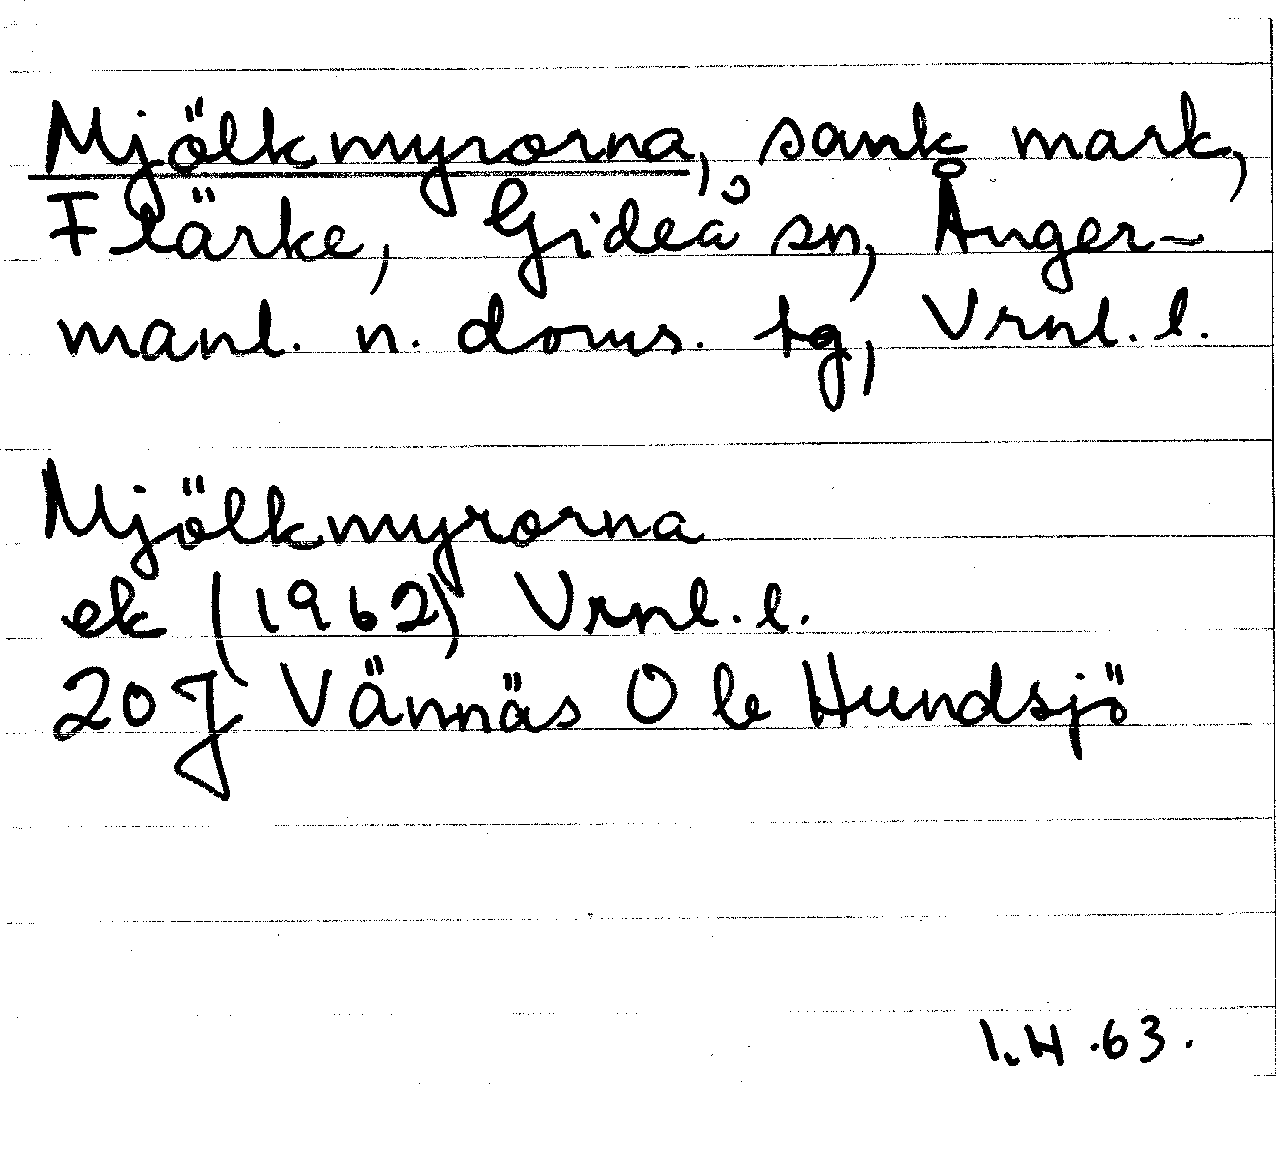 Mjölkmyrorna, sank mark,
Flärke, Gideå sn, Ånger-
manl. n. doms. tg, Vrnl. l.
Mjölkmyrorna
ek (1962) Vrnl. l.
20J Vännäs O le Hundsjö
1.4.63.